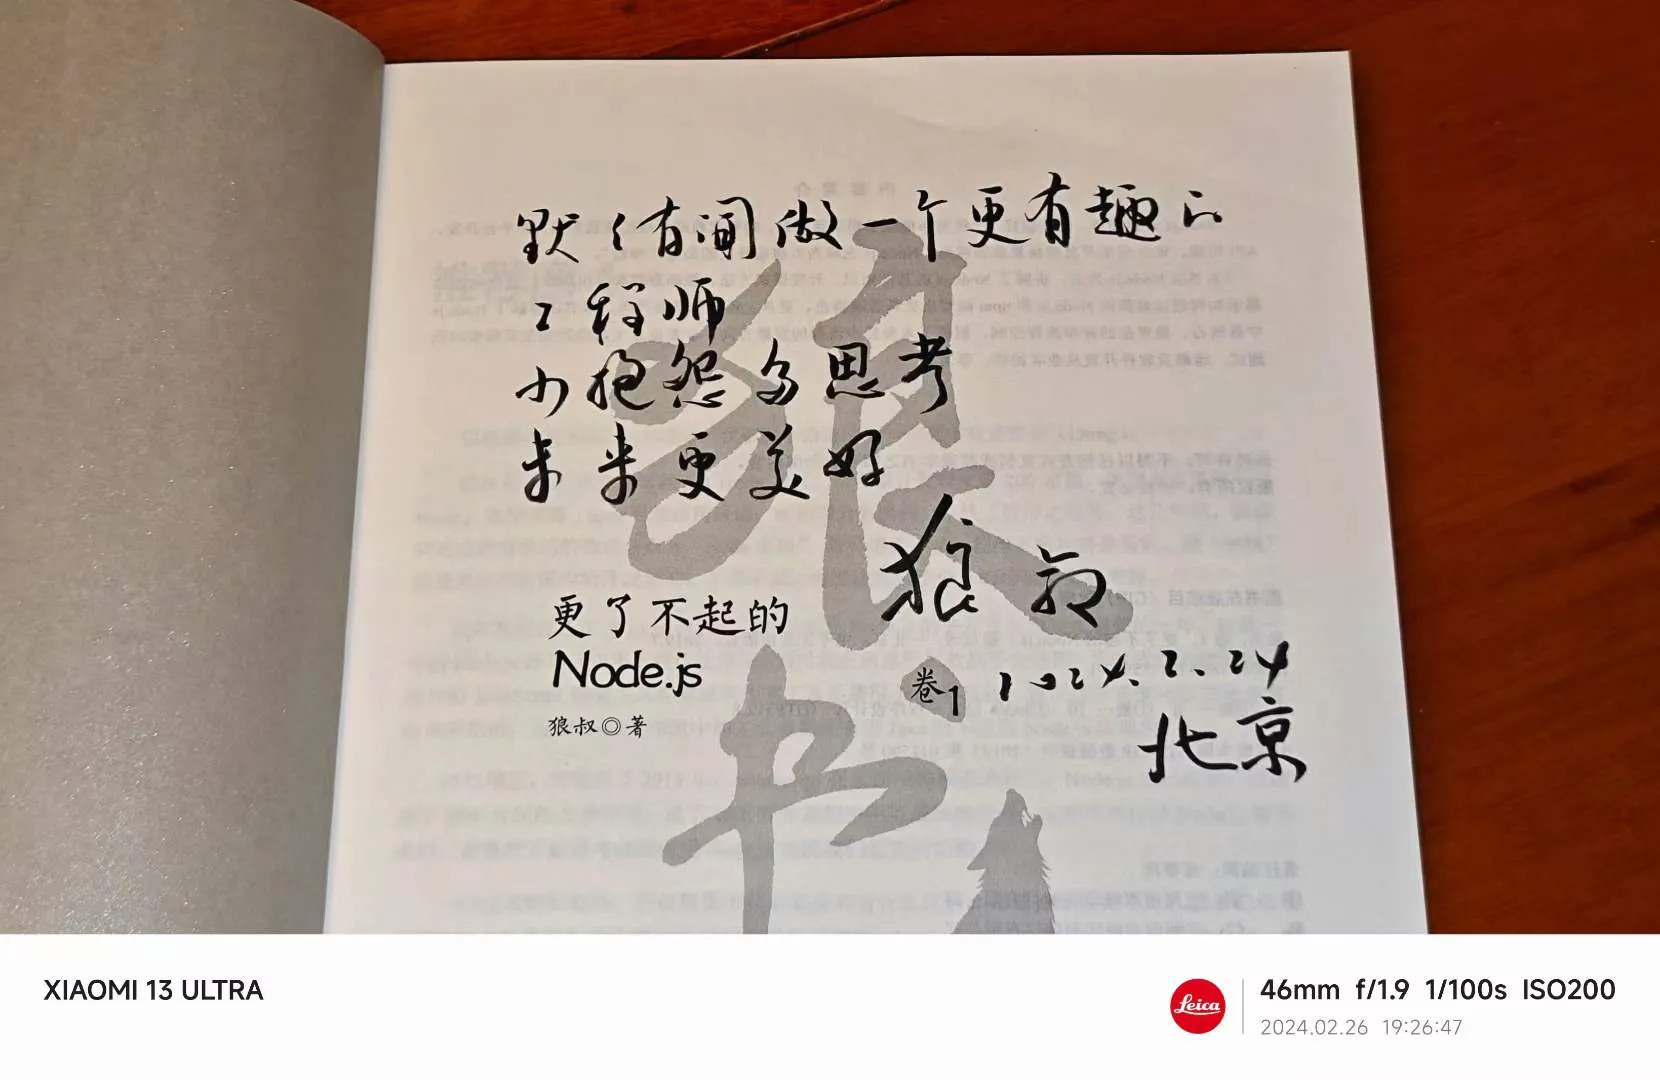 默默有闻做一个更有趣的
工程师
少抱怨多思考
未来更美好
狼叔
2024.2.24
北京
狼书
更了不起的
Node.js
卷1
狼叔◎著
XIAOMI 13 ULTRA
Leica
46mm f/1.9 1/100s ISO200
2024.02.26 19:26:47